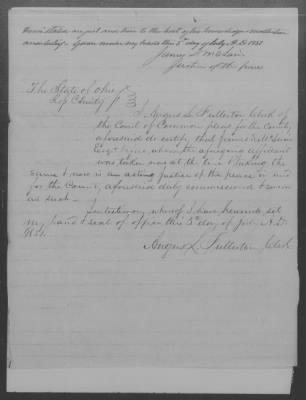 therein stated are just and true to the best of his knowledge
and belief. Given under my hand this 5th day of July A.D. 1851
James McClain
Justice of the peace
The State of Ohio
Ross County
I, Angus L. Fullerton Clerk of
the Court of Common pleas for the County
aforesaid do certify that James McClain
Esq. before whom the aforegoing affidavit
was taken was at the time of taking the
same & now is an acting Justice of the peace in and
for the County aforesaid duly commissioned & sworn
as such.
In testimony whereof I have hereunto set
my hand & seal of office this 5th day of July A.D.
1851.
Angus L. Fullerton Clerk